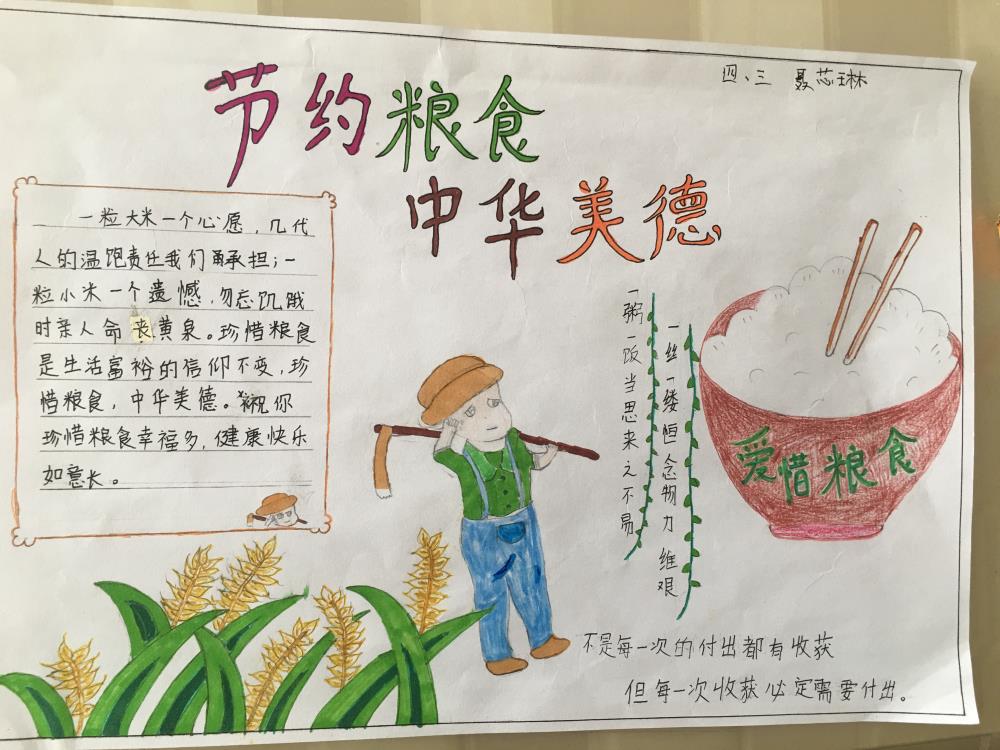 四、三 聂芯琳
节约粮食
中华美德
一粒大米一个心愿，几代
人的温饱责任我们承担；一
粒小米一个遗憾，勿忘饥饿
时亲人命丧黄泉。珍惜粮食
是生活富裕的信仰不变，珍
惜粮食，中华美德。祝你
珍惜粮食幸福多，健康快乐
如意长。
一粥一饭当思来之不易
一丝一缕恒念物力维艰
爱惜粮食
不是每一次的付出都有收获
但每一次收获必定需要付出。